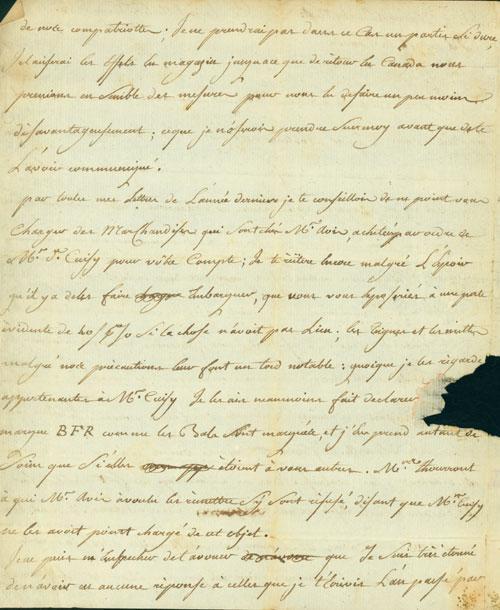 de notre compatriotte; Je ne prendrai pas dans ce Cas un partis si dure,
Je Laisserai les Effets En magazin jusqu'a ce que de retour En Canada nous
prenions En Semble des mesures pour nous En defaire un peu moins
désavantageusement; ce que je n'oserois prendre Sur moy avant que de te
L'avoir communiqué.
par toutes mes Lettres de L'année derniere je te conseillois de ne point vous
Charger des Marchandises qui sont chés Mr. Avis, achetés par ordre de
Mr. Cuisy pour vôtre Compte; Je te réitere Encore malgré L'Espoir
qu'il y a de les faire Embarquer, que vous vous Exposeriés à une perte
évidente de 40/ P% Si la chose n'avoit pas Lieu; les teignes et les mittes
malgré notre précautions leur font un tord notable: quoique je les regarde
appartenantes à Mr. Cuisy Je les ai neanmoins fait declarer
marque BFR comme les Bals sont marquées, et j'En prend autant de
Soins que Si elles étoient à vous autres. Mrs. Thouron
à qui Mr. Avis à voulu les remettre S'y Sont refusé, disant que Mr. Cuisy
ne les avoit point chargé de cet objet.
Je ne puis m'Empecher de t'avouer que Je Suis très étonné
de n'avoir eu aucune réponse à celles que je t'Ecrivis L'an passé par